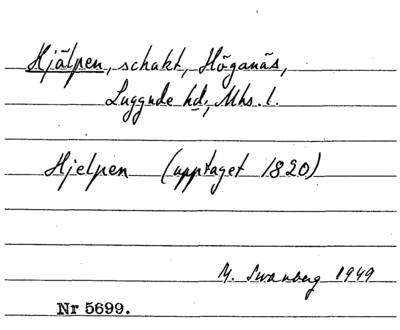 Hjälpen, schakt, Höganäs,
Luggude hd, Mhs. l.
Hjelpen (upptaget 1820)
M. Swanberg 1949
Nr 5699.